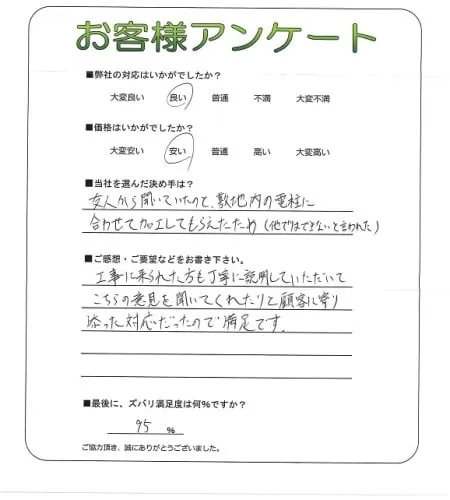 お客様アンケート
■弊社の対応はいかがでしたか？
大変良い 良い 普通 不満 大変不満
■価格はいかがでしたか？
大変安い 安い 普通 高い 大変高い
■当社を選んだ決め手は？
友人から聞いていたのと、敷地内の電柱に
合わせて加工してもらえたため（他ではできないと言われた）
■ご感想・ご要望などをお書き下さい。
工事に来られた方も丁寧に説明していただいて
こちらの意見を聞いてくれたりと顧客に寄り
添った対応だったので満足です。
■最後に、ズバリ満足度は何％ですか？
95 %
ご協力頂き、誠にありがとうございました。